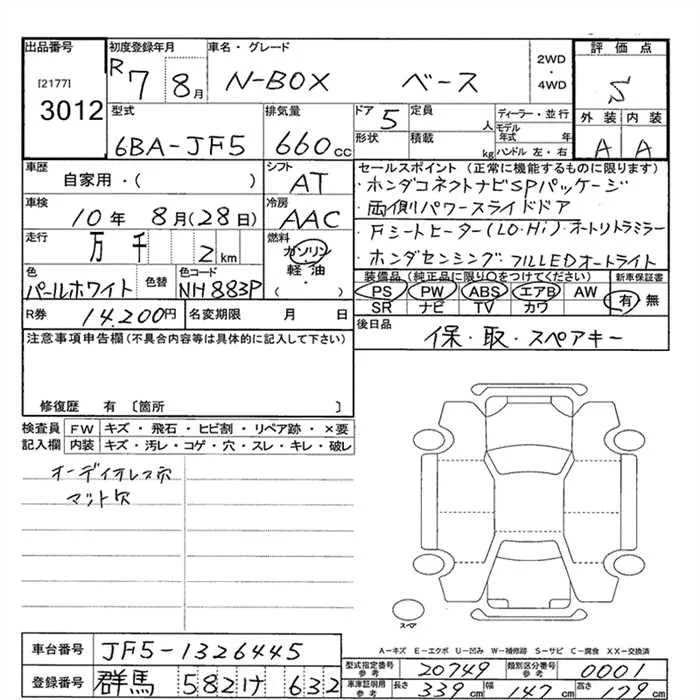 出品番号
[2177]
3012
初度登録年月
R7 8月
車名・グレード
N-BOX ベース
2WD
・
4WD
評価点
S
外装 内装
A A
型式
6BA-JF5
排気量
660cc
ドア 5
形状
定員 人
積載 kg
ディーラー・並行
モデル年式 年
ハンドル 左・右
車歴
自家用・( )
シフト
AT
車検
10年 8月(28日)
冷房
AAC
走行
万 千 2km
燃料
ガソリン
軽油
( )
色
パールホワイト
色替
色コード
NH883P
R券 14,200円
名変期限 月 日
セールスポイント (正常に機能するものに限ります)
・ホンダコネクトナビSPパッケージ
・両側パワースライドドア
・Fシートヒーター(LO・Hi)オートリトラミラー
・ホンダセンシング フルLEDオートライト
装備品 (純正品に限り○をつけてください)
PS PW ABS エアB AW
SR ナビ TV カワ
新車保証書
有 無
後日品
保・取・スペアキー
注意事項申告欄(不具合内容等は具体的に記入して下さい)
修復歴 有 〔箇所 〕
検査員記入欄
FW キズ・飛石・ヒビ割・リペア跡・×要
内装 キズ・汚レ・コゲ・穴・スレ・キレ・破レ
オーディオレス穴
マット穴
スペア
A-キズ E-エクボ U-凹み W-補修跡 S-サビ C-腐食 XX-交換済
車台番号 JF5-1326445
登録番号 群馬 582 け 632
型式指定番号 参考 20749
類別区分番号 参考 0001
車庫証明用 参考 長さ 339cm 幅 147cm 高さ 179cm